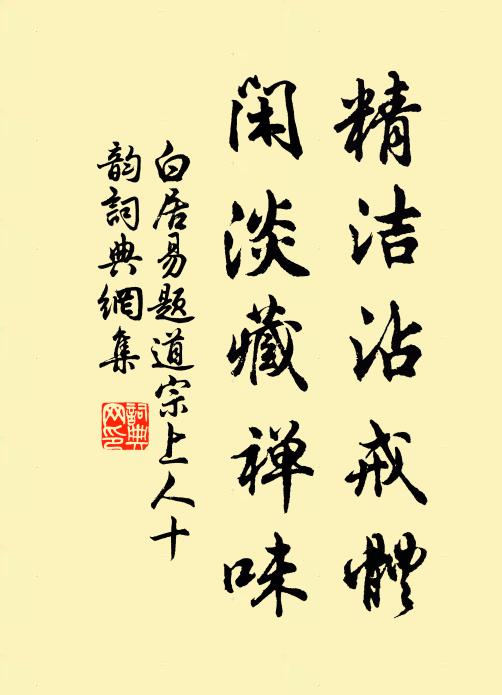 精洁沾戒體
閑淡藏禅味
白居易題道宗上人十
韵詞典網集
詞典
网印